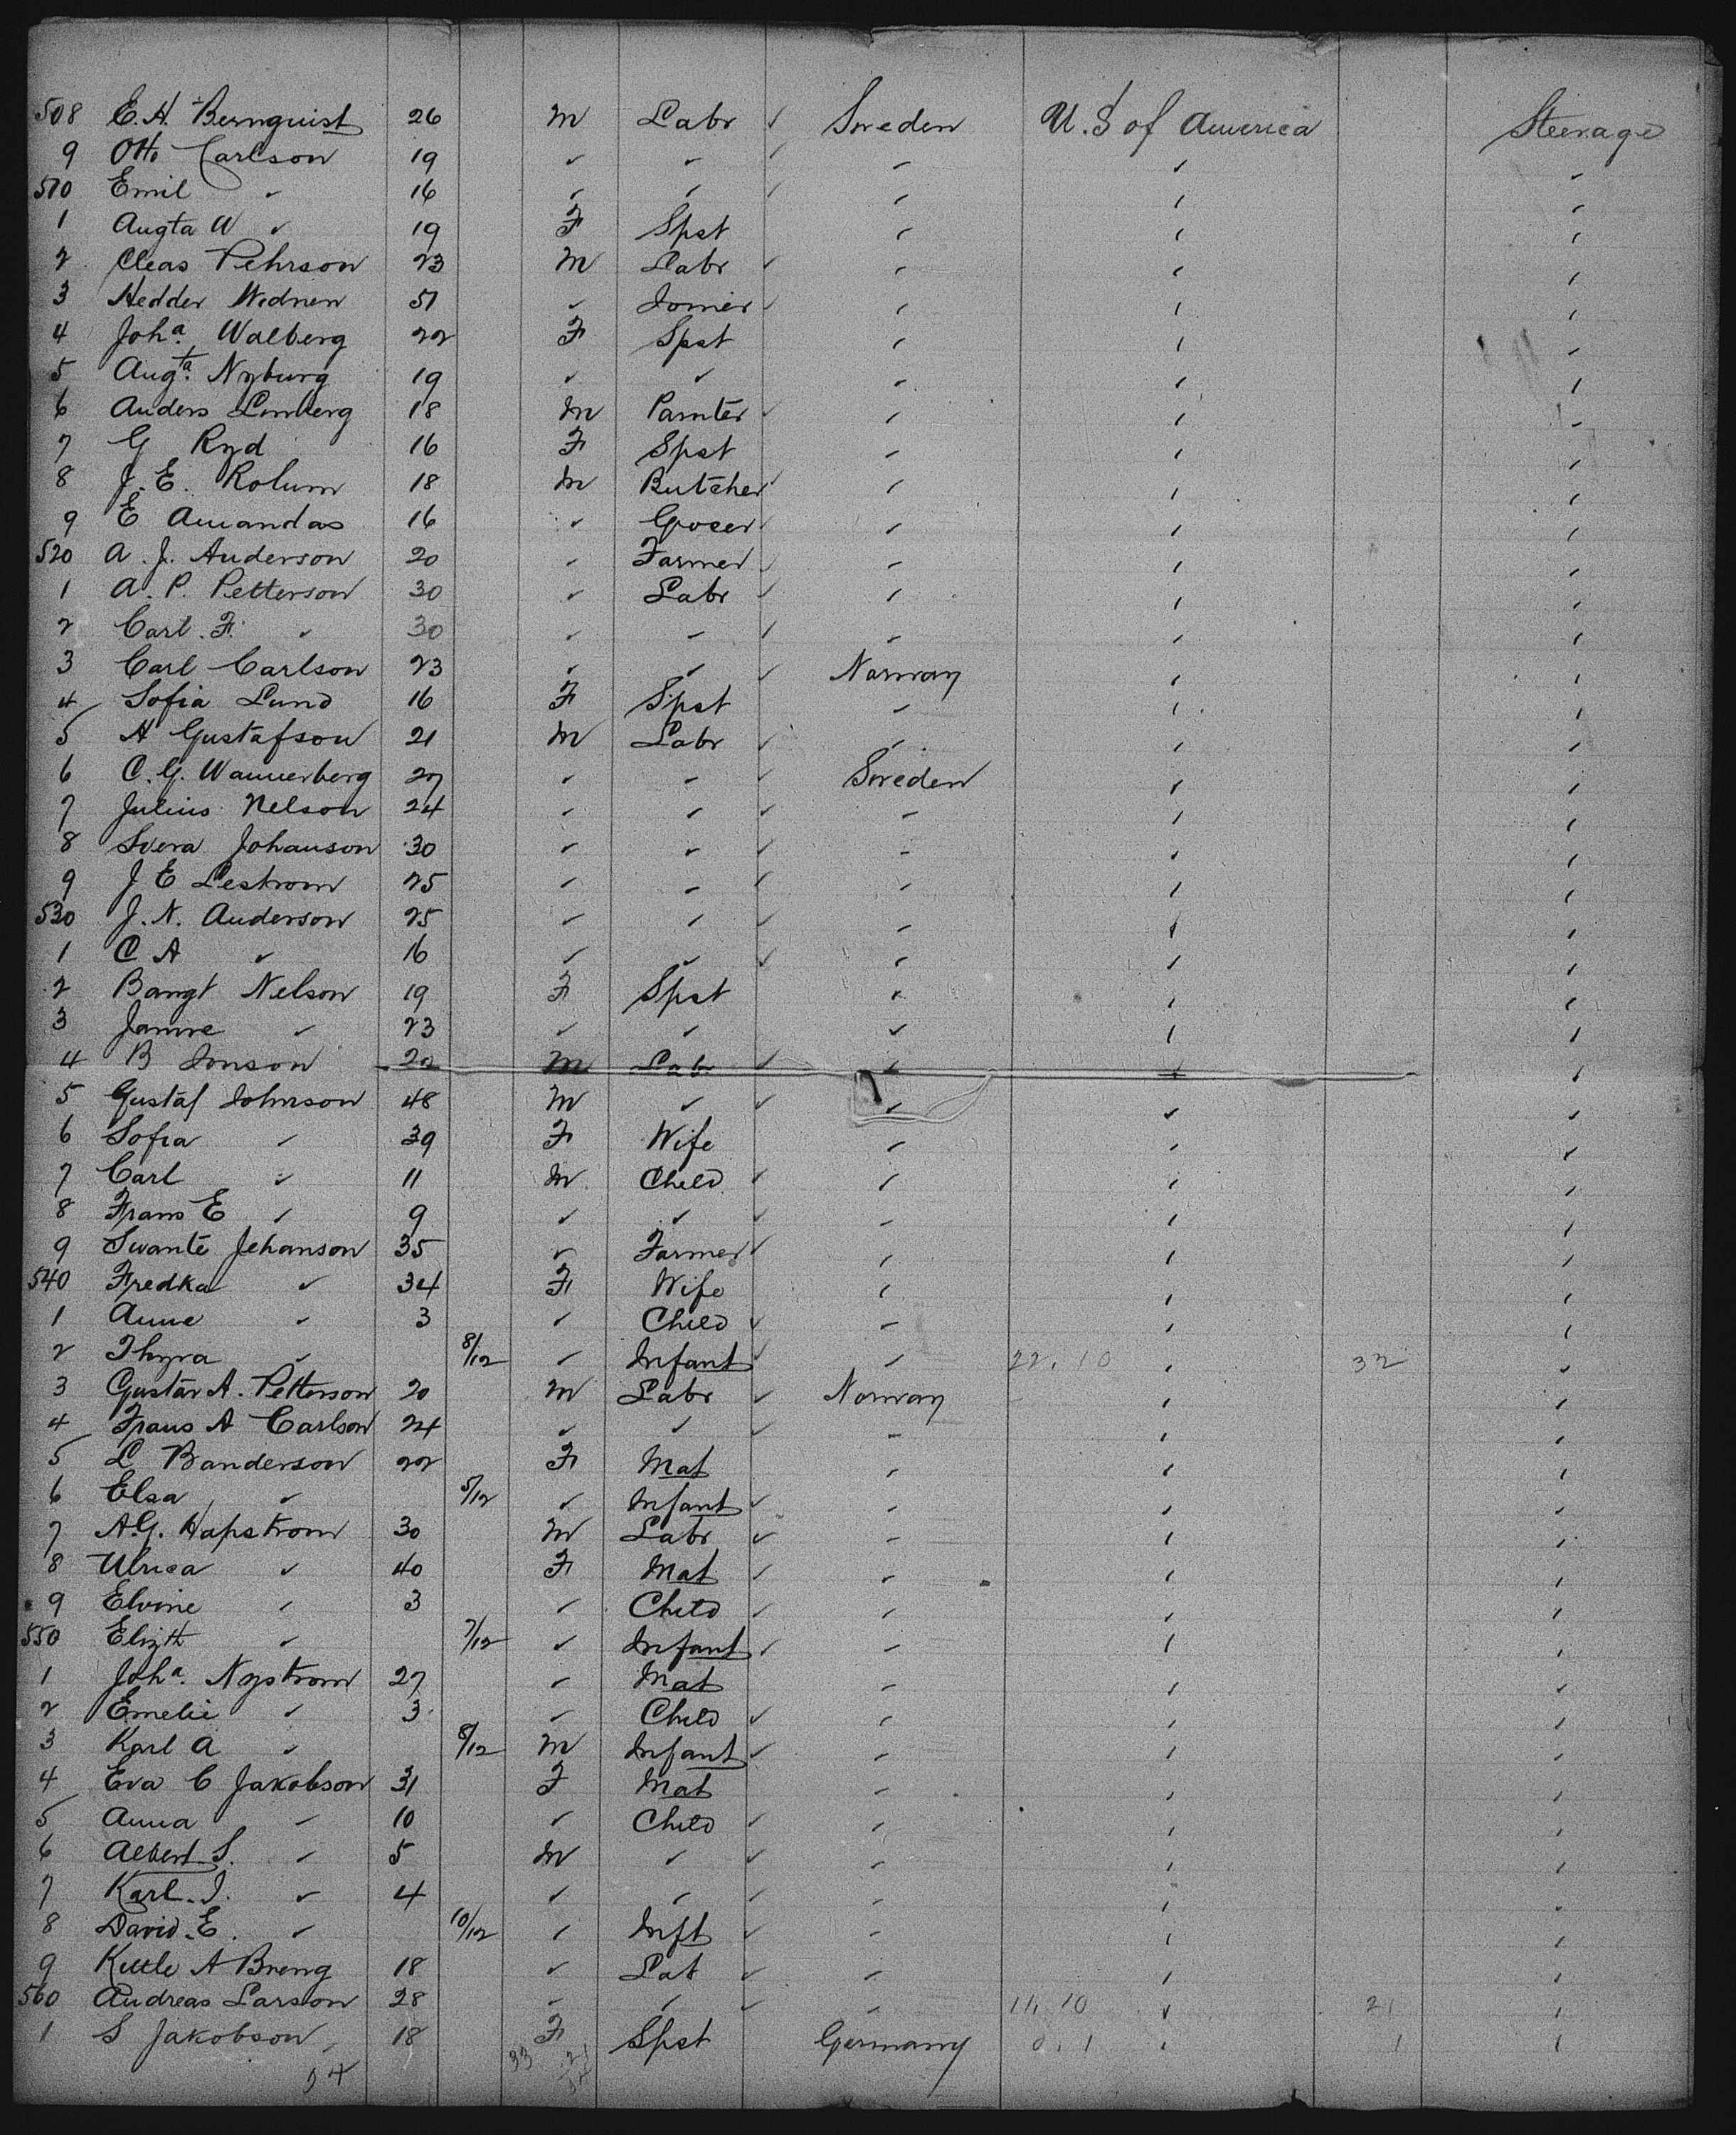 508 E. A. Bernquist 26 M Labr ✓ Sweden U. S of America Steerage
9 Otto Carlson 19 ✓ ✓ ✓ ✓ ✓ ✓
510 Emil ✓ 16 ✓ ✓ ✓ ✓ ✓ ✓
1 Augta W ✓ 19 F Spst ✓ ✓ ✓
2 Cleas Pehrson 23 M Labr ✓ ✓ ✓ ✓
3 Hedder Wednen 51 ✓ Joiner ✓ ✓ ✓ ✓
4 Joha. Walberg 22 F Spst ✓ ✓ ✓
5 Augta. Nyburg 19 ✓ ✓ ✓ ✓ ✓
6 Anders Limberg 18 M Painter ✓ ✓ ✓ ✓
7 G Ryd 16 F Spst ✓ ✓ ✓
8 J. E. Rolum 18 M Butcher ✓ ✓ ✓ ✓
9 E Amandas 16 ✓ Grocer ✓ ✓ ✓ ✓
520 A. J. Anderson 20 ✓ Farmer ✓ ✓ ✓ ✓
1 A. P. Petterson 30 ✓ Labr ✓ ✓ ✓ ✓
2 Carl. F. ✓ 30 ✓ ✓ ✓ ✓ ✓ ✓
3 Carl Carlson 23 ✓ ✓ ✓ Norway ✓ ✓
4 Sofia Lund 16 F Spst ✓ ✓ ✓
5 A Gustafson 21 M Labr ✓ ✓ ✓ ✓
6 C. G. Wannerberg 27 ✓ ✓ ✓ Sweden ✓ ✓
7 Julius Nelson 24 ✓ ✓ ✓ ✓ ✓ ✓
8 Svera Johanson 30 ✓ ✓ ✓ ✓ ✓ ✓
9 J E Lestrom 25 ✓ ✓ ✓ ✓ ✓ ✓
530 J. N. Anderson 25 ✓ ✓ ✓ ✓ ✓ ✓
1 C A ✓ 16 ✓ ✓ ✓ ✓ ✓ ✓
2 Bangt Nelson 19 F Spst ✓ ✓ ✓
3 Janne ✓ 23 ✓ ✓ ✓ ✓ ✓
4 B Jonson 20 M Labr ✓ ✓ ✓ ✓
5 Gustaf Johnson 48 M ✓ ✓ ✓ ✓ ✓
6 Sofia ✓ 39 F Wife ✓ ✓ ✓
7 Carl ✓ 11 M Child ✓ ✓ ✓ ✓
8 Frans E ✓ 9 ✓ ✓ ✓ ✓ ✓ ✓
9 Swante Johanson 35 ✓ Farmer ✓ ✓ ✓ ✓
540 Fredka ✓ 34 F Wife ✓ ✓ ✓
1 Anne ✓ 3 ✓ Child ✓ ✓ ✓ ✓
2 Thyra ✓ 8/12 ✓ Infant ✓ ✓ 22.10 ✓ 32 ✓
3 Gustav A. Petterson 20 M Labr ✓ Norway ✓ ✓
4 Frans A Carlson 24 ✓ ✓ ✓ ✓ ✓ ✓
5 L Banderson 22 F Mat ✓ ✓ ✓
6 Elsa ✓ 5/12 ✓ Infant ✓ ✓ ✓ ✓
7 A.G. Hapstrom 30 M Labr ✓ ✓ ✓ ✓
8 Ulrica ✓ 40 F Mat ✓ ✓ ✓ ✓
9 Elvine ✓ 3 ✓ Child ✓ ✓ ✓ ✓
550 Elizth ✓ 7/12 ✓ Infant ✓ ✓ ✓ ✓
1 Joha. Nystrom 27 ✓ Mat ✓ ✓ ✓
2 Emelie ✓ 3 ✓ Child ✓ ✓ ✓ ✓
3 Karl A ✓ 8/12 M Infant ✓ ✓ ✓ ✓
4 Eva C Jakobson 31 F Mat ✓ ✓ ✓
5 Anna ✓ 10 ✓ Child ✓ ✓ ✓ ✓
6 Albert S. ✓ 5 M ✓ ✓ ✓ ✓ ✓
7 Karl. J. ✓ 4 ✓ ✓ ✓ ✓ ✓ ✓
8 David. E. ✓ 10/12 ✓ Inft ✓ ✓ ✓ ✓
9 Kittle A Breng 18 ✓ Lab ✓ ✓ ✓ ✓
560 Andreas Larson 28 ✓ ✓ ✓ ✓ 11.10 ✓ 21 ✓
1 S Jakobson 18 F Spst Germany 0.1 ✓ 1 ✓
54 33 21
54